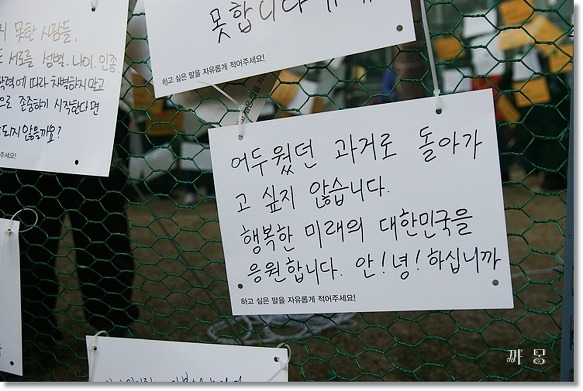 못합니다
하고 싶은 말을 자유롭게 적어주세요!
못한 사람들,
서로를 성별, 나이, 인종,
에 따라 차별하지 말고
으로 존중하기 시작한다면
되지 않을까요?
주세요!
어두웠던 과거로 돌아가
고 싶지 않습니다.
행복한 미래의 대한민국을
응원합니다. 안!녕!하십니까
하고 싶은 말을 자유롭게 적어주세요!
까몽